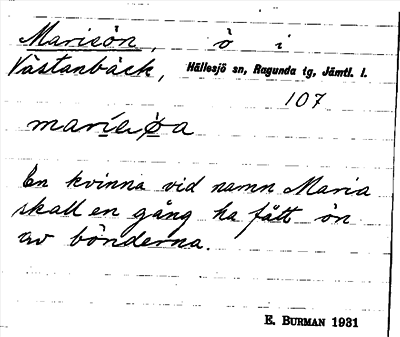 Marisön, ö i
Västanbäck, Hällesjö sn, Ragunda tg, Jämtl. l.
107
En kvinna vid namn Maria
skall en gång ha fått ön
av bönderna.
E. BURMAN 1931